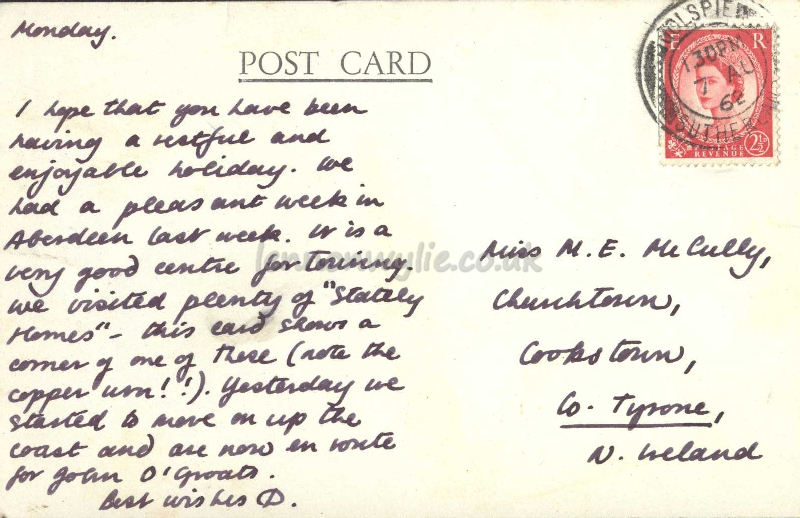 Monday.
POST CARD
I hope that you have been
having a restful and
enjoyable holiday. We
had a pleasant week in
Aberdeen last week. It is a
very good centre for touring.
We visited plenty of "Stately
Homes" - this card shows a
corner of one of these (note the
copper urn!!). Yesterday we
started to move on up the
coast and are now en route
for John O'Groats.
Best wishes D.
GOLSPIE
1.30PM
7 AU
62
SUTHERLAND
E R
POSTAGE
REVENUE
2½D
Miss M. E. McCully,
Churchtown,
Cookstown,
Co. Tyrone,
N. Ireland
lennonwylie.co.uk